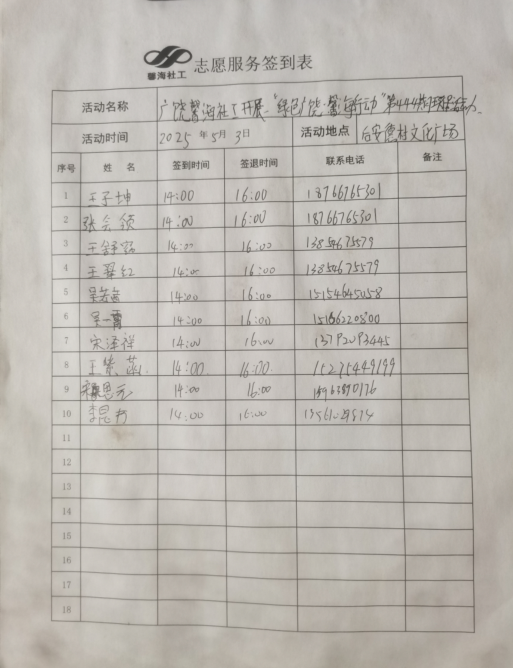 馨海社工
志愿服务签到表
活动名称 广饶馨海社工开展"绿色广饶·馨海行动"第444期环保活动
活动时间 2025年5月3日 活动地点 后安德村文化广场
序号 姓名 签到时间 签退时间 联系电话 备注
1 王子坤 14:00 16:00 18766765301
2 张会领 14:00 16:00 18766765301
3 王舒 14:00 16:00 13854675579
4 王翠红 14:00 16:00 13854675579
5 吴 14:00 16:00 15154645058
6 吴一霄 14:00 16:00
7 宋泽祥 14:00 16:00 13792093445
8 王紫菡 14:00 16:00 15275449199
9 程思元 14:00 16:00
10 李昆 14:00 16:00
11
12
13
14
15
16
17
18